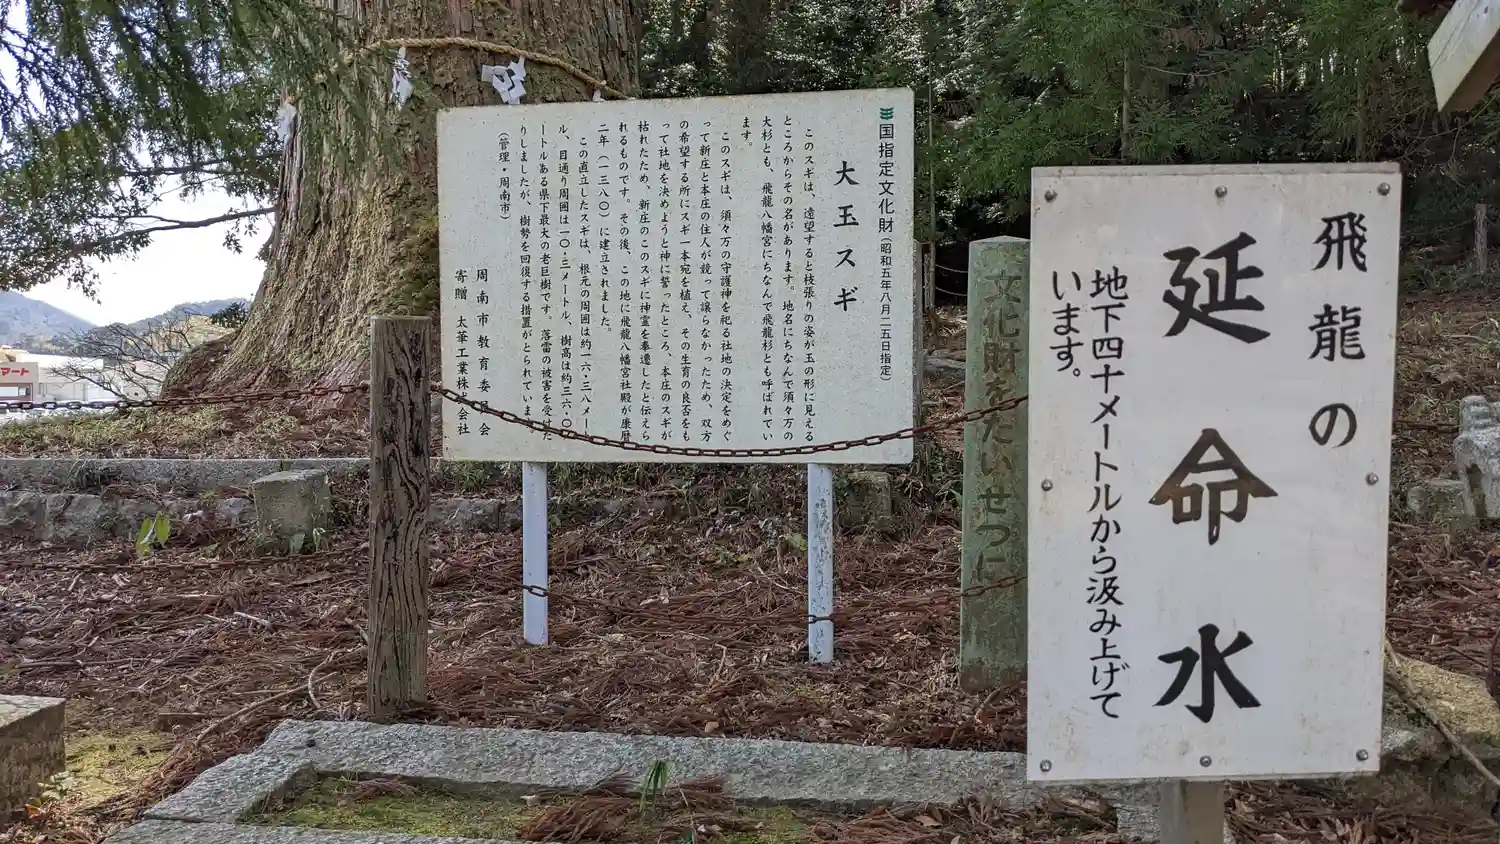 飛龍の
延命水
地下四十メートルから汲み上げて
います。
国指定文化財(昭和五年八月二五日指定)
大玉スギ
このスギは、遠望すると枝張りの姿が玉の形に見える
ところからその名があります。地名にちなんで須々万の
大杉とも、飛龍八幡宮にちなんで飛龍杉とも呼ばれてい
ます。
このスギは、須々万の守護神を祀る社地の決定をめぐ
って新庄と本庄の住人が競って譲らなかったため、双方
の希望する所にスギ一本宛を植え、その生育の良否をも
って社地を決めようと神に誓ったところ、本庄のスギが
枯れたため、新庄のこのスギに神霊を奉遷したと伝えら
れるものです。その後、この地に飛龍八幡宮社殿が康暦
二年(一三八〇)に建立されました。
この直立したスギは、根元の周囲は約一六・三八メート
ル、目通り周囲は一〇・三メートル、樹高は約三六・〇
ートルある県下最大の老巨樹です。落雷の被害を受けた
りしましたが、樹勢を回復する措置がとられています。
(管理・周南市)
周南市教育委員会
寄贈 太華工業株式会社
文化財をたいせつに
マート